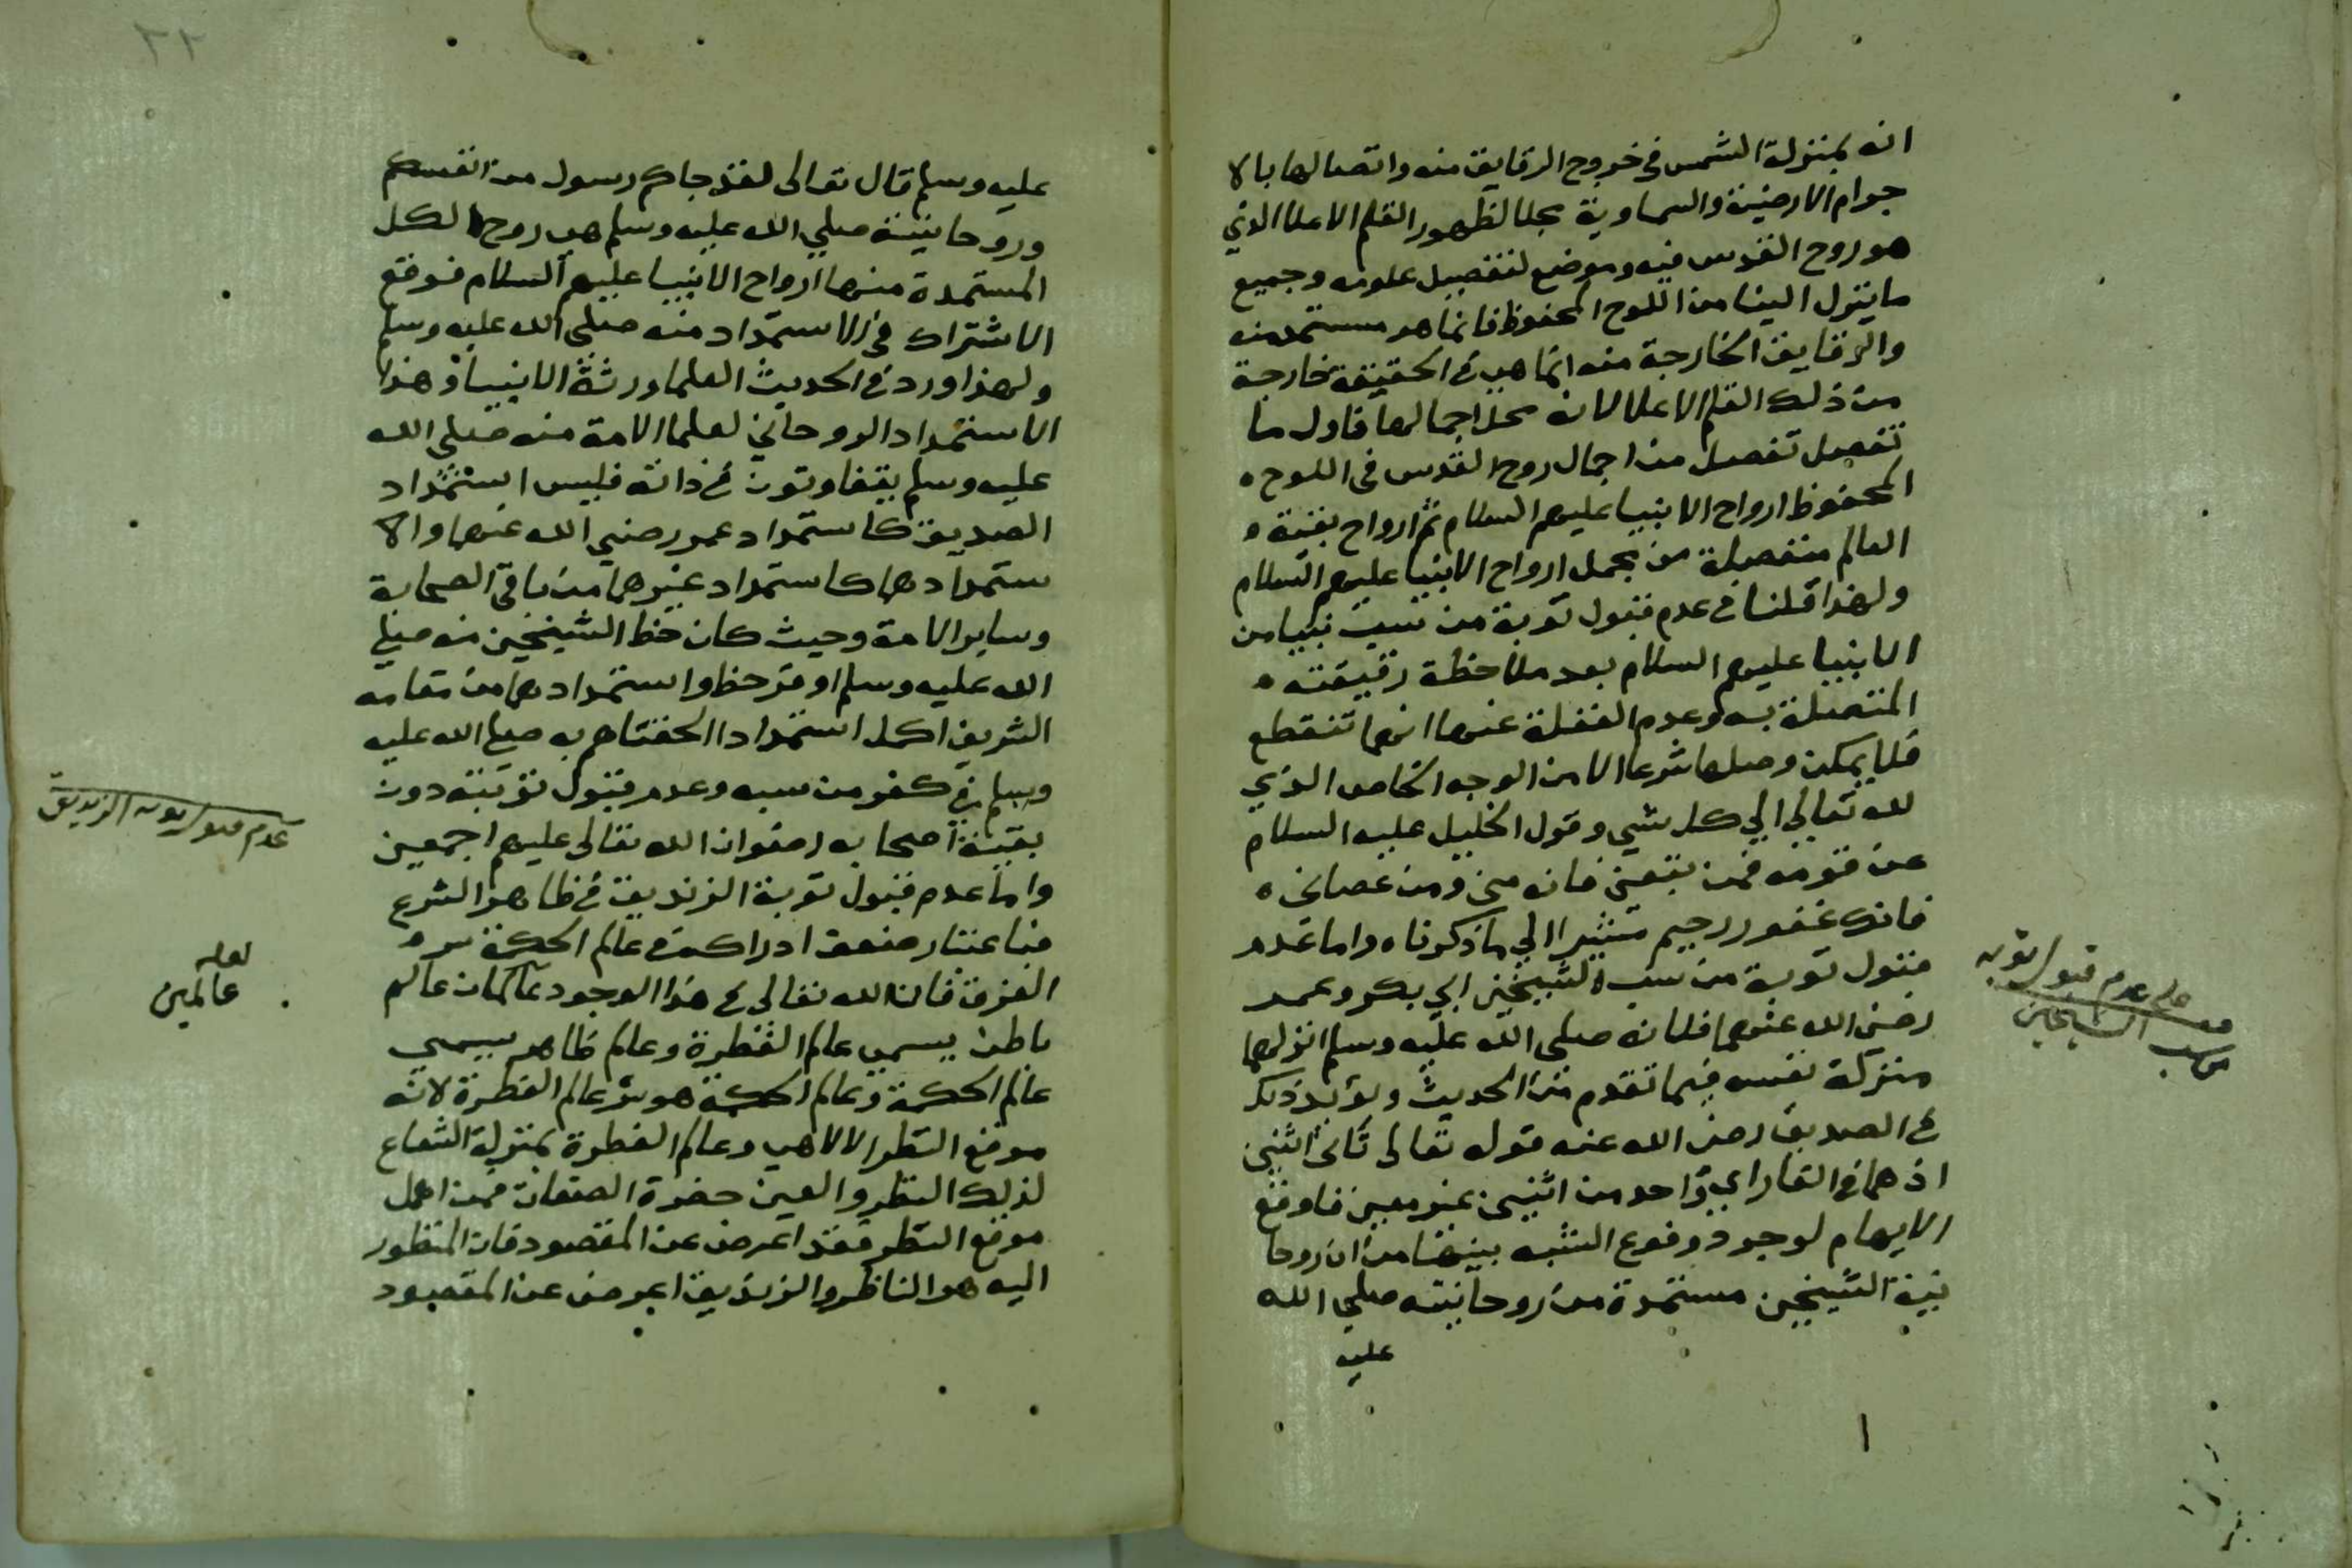 انه بمنزلة الشمس في خروج الرقايق منه واتصالها بالا
جرام الارضية والسماوية مجلا لظهور القلم الاعلا الذي
هو روح القدس فيه وموضع لتفصيل علومه وجميع
ما يتنزل الينا من اللوح المحفوظ فانما هو مستمد منه
والرقايق الخارجة منه انما هي في الحقيقة خارجة
من ذلك القلم الاعلا لانه محل اجمالها فاول ما
تفصل تفصل من اجمال روح القدس في اللوح ه
المحفوظ ارواح الانبيا عليهم السلام ثم ارواح بقية ه
العالم منفصلة من مجمل ارواح الانبيا عليهم السلام
ولهذا قلنا في عدم قبول توبة من سب نبيا من
الانبيا عليهم السلام بعد ملاحظة رقيقته ه
المتصلة به وعدم الغفلة عنها انها تنقطع
فلا يمكن وصلها شرعا الا من الوجه الخاص الذي
لله تعالي الي كل شي وقول الخليل عليه السلام
عن قومه فمن تبعني فانه مني ومن عصاني ه
فانك غفور رحيم مشيرا الي ما ذكرناه واما عدم
قبول توبة من سب الشيخين ابي بكر وعمر
رضي الله عنهما فلانه صلي الله عليه وسلم انزلهما
منزلة نفسه فيما تقدم من الحديث ويؤيد ذلك
في الصديق رضي الله عنه قوله تعالى ثاني اثنين
اذ هما في الغار اي واحد من اثنين غير معين فاوقع
الايهام لوجود وقوع الشبه بينهما من ان روحا
نية الشيخين مستمدة من روحانيته صلي الله
عليه
على عدم قبول توبه
من سب الشيخين
٢٢
عليه وسلم قال تعالى لقد جاكم رسول من انفسكم
وروحانيته صلي الله عليه وسلم هي روح الكل
المستمدة منها ارواح الانبيا عليهم السلام فوقع
الاشتراك في الاستمداد منه صلي الله عليه وسلم
ولهذا ورد في الحديث العلما ورثة الانبيا وهذا
الاستمداد الروحاني لعلما الامة منه صلي الله
عليه وسلم يتفاوتون في ذاته فليس استمداد
الصديق كاستمداد عمر رضي الله عنهما ولا ا
ستمدادهما كاستمداد غيرهما من باقي الصحابة
وساير الامة وحيث كان حظ الشيخين منه صلي
الله عليه وسلم اوفر حظ واستمدادهما من مقامه
الشريف اكمل استمداد الحقناهم به صلي الله عليه
وسلم في كفر من سبه وعدم قبول توبته دون
بقية اصحابه رضوان الله تعالى عليهم اجمعين
واما عدم قبول توبة الزنديق في ظاهر الشرع
فباعتبار ضعف ادراكه في عالم الحكمة سر ه
الفرق فان الله تعالى في هذا الوجود عالمان عالم
باطن يسمى عالم الفطرة وعالم ظاهر يسمي
عالم الحكمة وعالم الحكمة هو سر عالم الفطرة لانه
موقع النظر الالاهي وعالم الفطرة بمنزلة الشعاع
لذلك النظر والعين حضرة الصفات فمن اهمل
موقع النظر فقد اعرض عن المقصود فان المنظور
اليه هو الناظر والزنديق اعرض عن المقصود
عدم قبول توبه الزنديق
لعله
عالمين